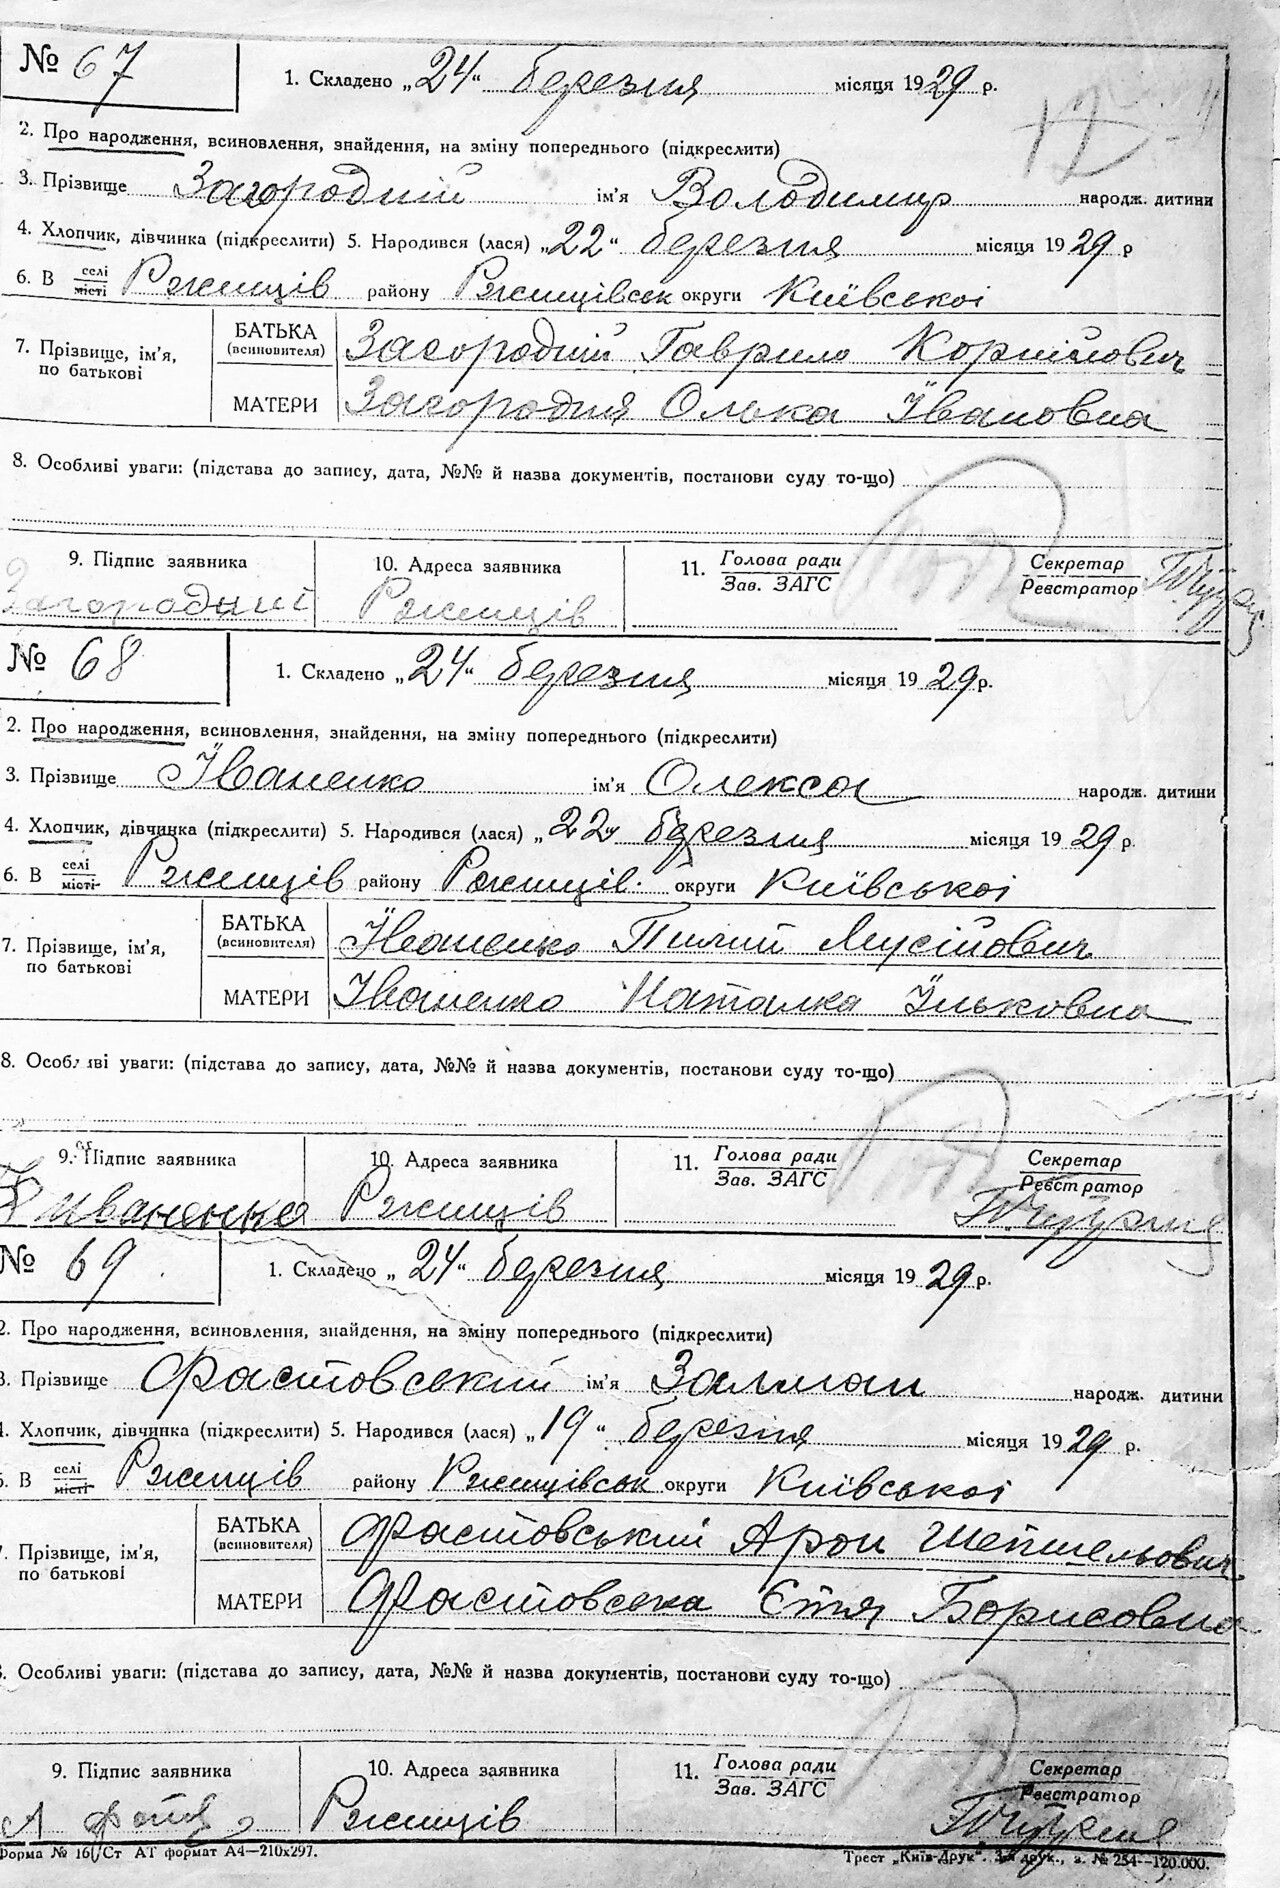 № 67
1. Складено „24“ березня місяця 1929 р.
2. Про народження, всиновлення, знайдення, на зміну попереднього (підкреслити)
3. Прізвище Загородній ім’я Володимир народж. дитини
4. Хлопчик, дівчинка (підкреслити) 5. Народився (лася) „22“ березня місяця 1929 р
6. В селі місті Ржищів району Ржищівськ округи Київської
7. Прізвище, ім’я, по батькові
БАТЬКА (всиновителя) Загородній Гаврило Корнійович
МАТЕРИ Загородня Олька Івановна
8. Особливі уваги: (підстава до запису, дата, №№ й назва документів, постанови суду то-що)
9. Підпис заявника 10. Адреса заявника 11. Голова ради Зав. ЗАГС Секретар Реєстратор
Загородний Ржищів
№ 68
1. Складено „24“ березня місяця 1929 р.
2. Про народження, всиновлення, знайдення, на зміну попереднього (підкреслити)
3. Прізвище Їваненко ім’я Олекса народж. дитини
4. Хлопчик, дівчинка (підкреслити) 5. Народився (лася) „22“ березня місяця 1929 р.
6. В селі місті Ржищів району Ржищів. округи Київської
7. Прізвище, ім’я, по батькові
БАТЬКА (всиновителя) Їваненко Пилип Мусійович
МАТЕРИ Їваненко Наталка Їльковна
8. Особливі уваги: (підстава до запису, дата, №№ й назва документів, постанови суду то-що)
9. Підпис заявника 10. Адреса заявника 11. Голова ради Зав. ЗАГС Секретар Реєстратор
Иваненко Ржищів
№ 69
1. Складено „24“ березня місяця 1929 р.
2. Про народження, всиновлення, знайдення, на зміну попереднього (підкреслити)
3. Прізвище Фастовський ім’я Залман народж. дитини
4. Хлопчик, дівчинка (підкреслити) 5. Народився (лася) „19“ березня місяця 1929 р.
6. В селі місті Ржищів району Ржищівськ округи Київської
7. Прізвище, ім’я, по батькові
БАТЬКА (всиновителя) Фастовський Арон Шепшельович
МАТЕРИ Фастовська Етя Борисовна
8. Особливі уваги: (підстава до запису, дата, №№ й назва документів, постанови суду то-що)
9. Підпис заявника 10. Адреса заявника 11. Голова ради Зав. ЗАГС Секретар Реєстратор
Ржищів
Форма № 16 Ст АТ формат А4—210х297. Трест „Київ-Друк“. 3-я друк., з. № 254—120.000.